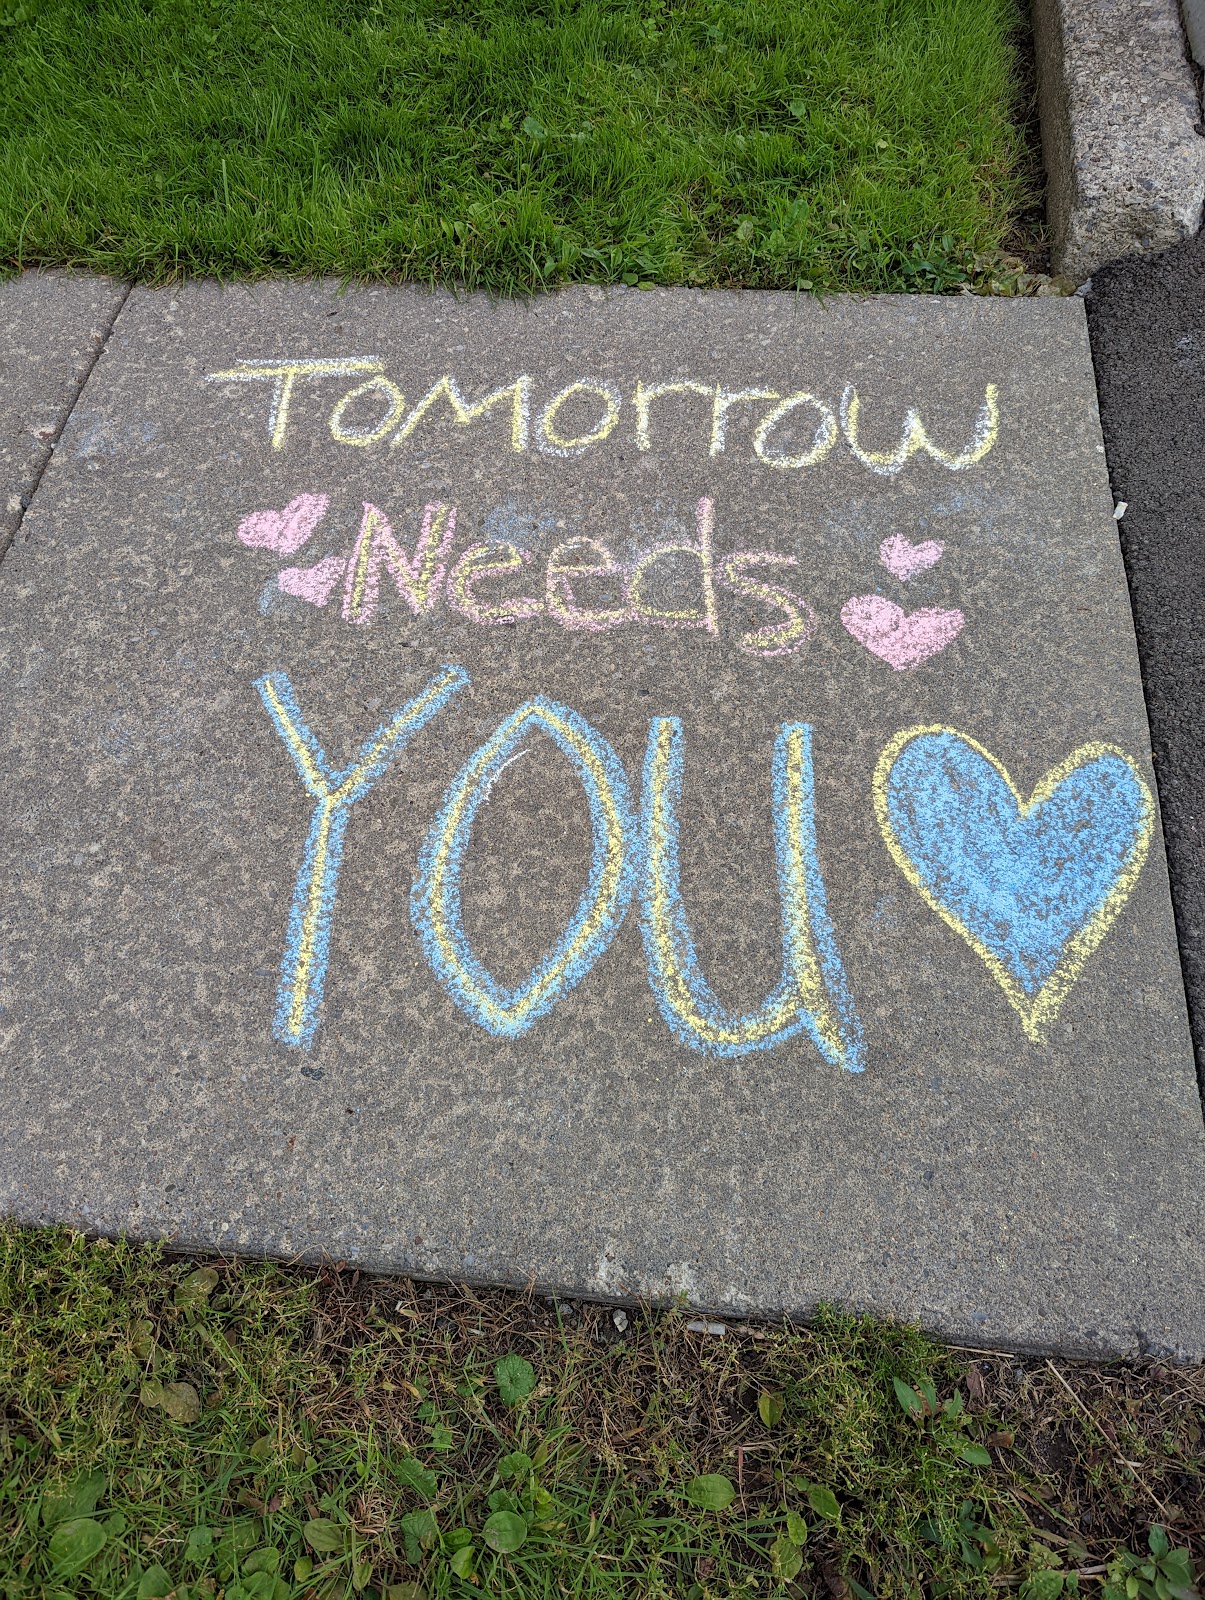 Tomorrow
Needs
YOU